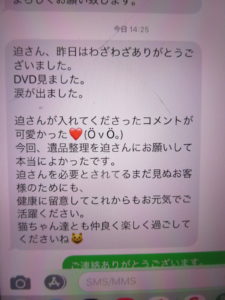 よろしくお願い致します。
今日 14:25
迫さん、昨日はわざわざありがとうご
ざいました。
DVD見ました。
涙が出ました。
迫さんが入れてくださったコメントが
可愛かった❤️(Ö v Ö｡)
今回、遺品整理を迫さんにお願いして
本当によかったです。
迫さんを必要とされてるまだ見ぬお客
様のためにも、
健康に留意してこれからもお元気でご
活躍ください。
猫ちゃん達とも仲良く楽しく過ごして
くださいね😺
ご連絡ありがとうございます。
SMS/MMS